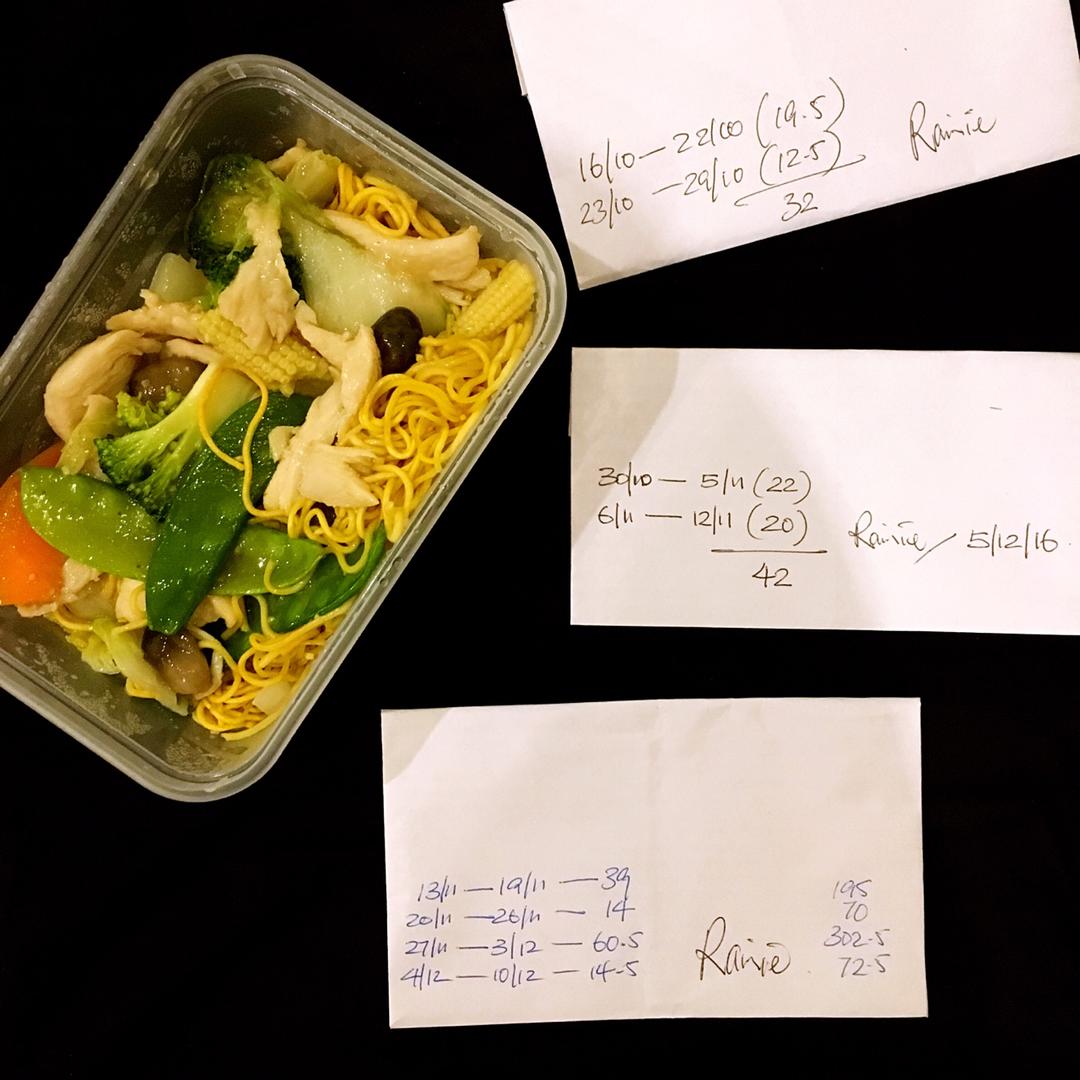 16/10 — 22/10 (19.5)
23/10 — 29/10 (12.5)
32
Rainie
30/10 — 5/11 (22)
6/11 — 12/11 (20)
42
Rainie / 5/12/16.
13/11 — 19/11 — 39
20/11 — 26/11 — 14
27/11 — 3/12 — 60.5
4/12 — 10/12 — 14.5
Rainie
195
70
302.5
72.5